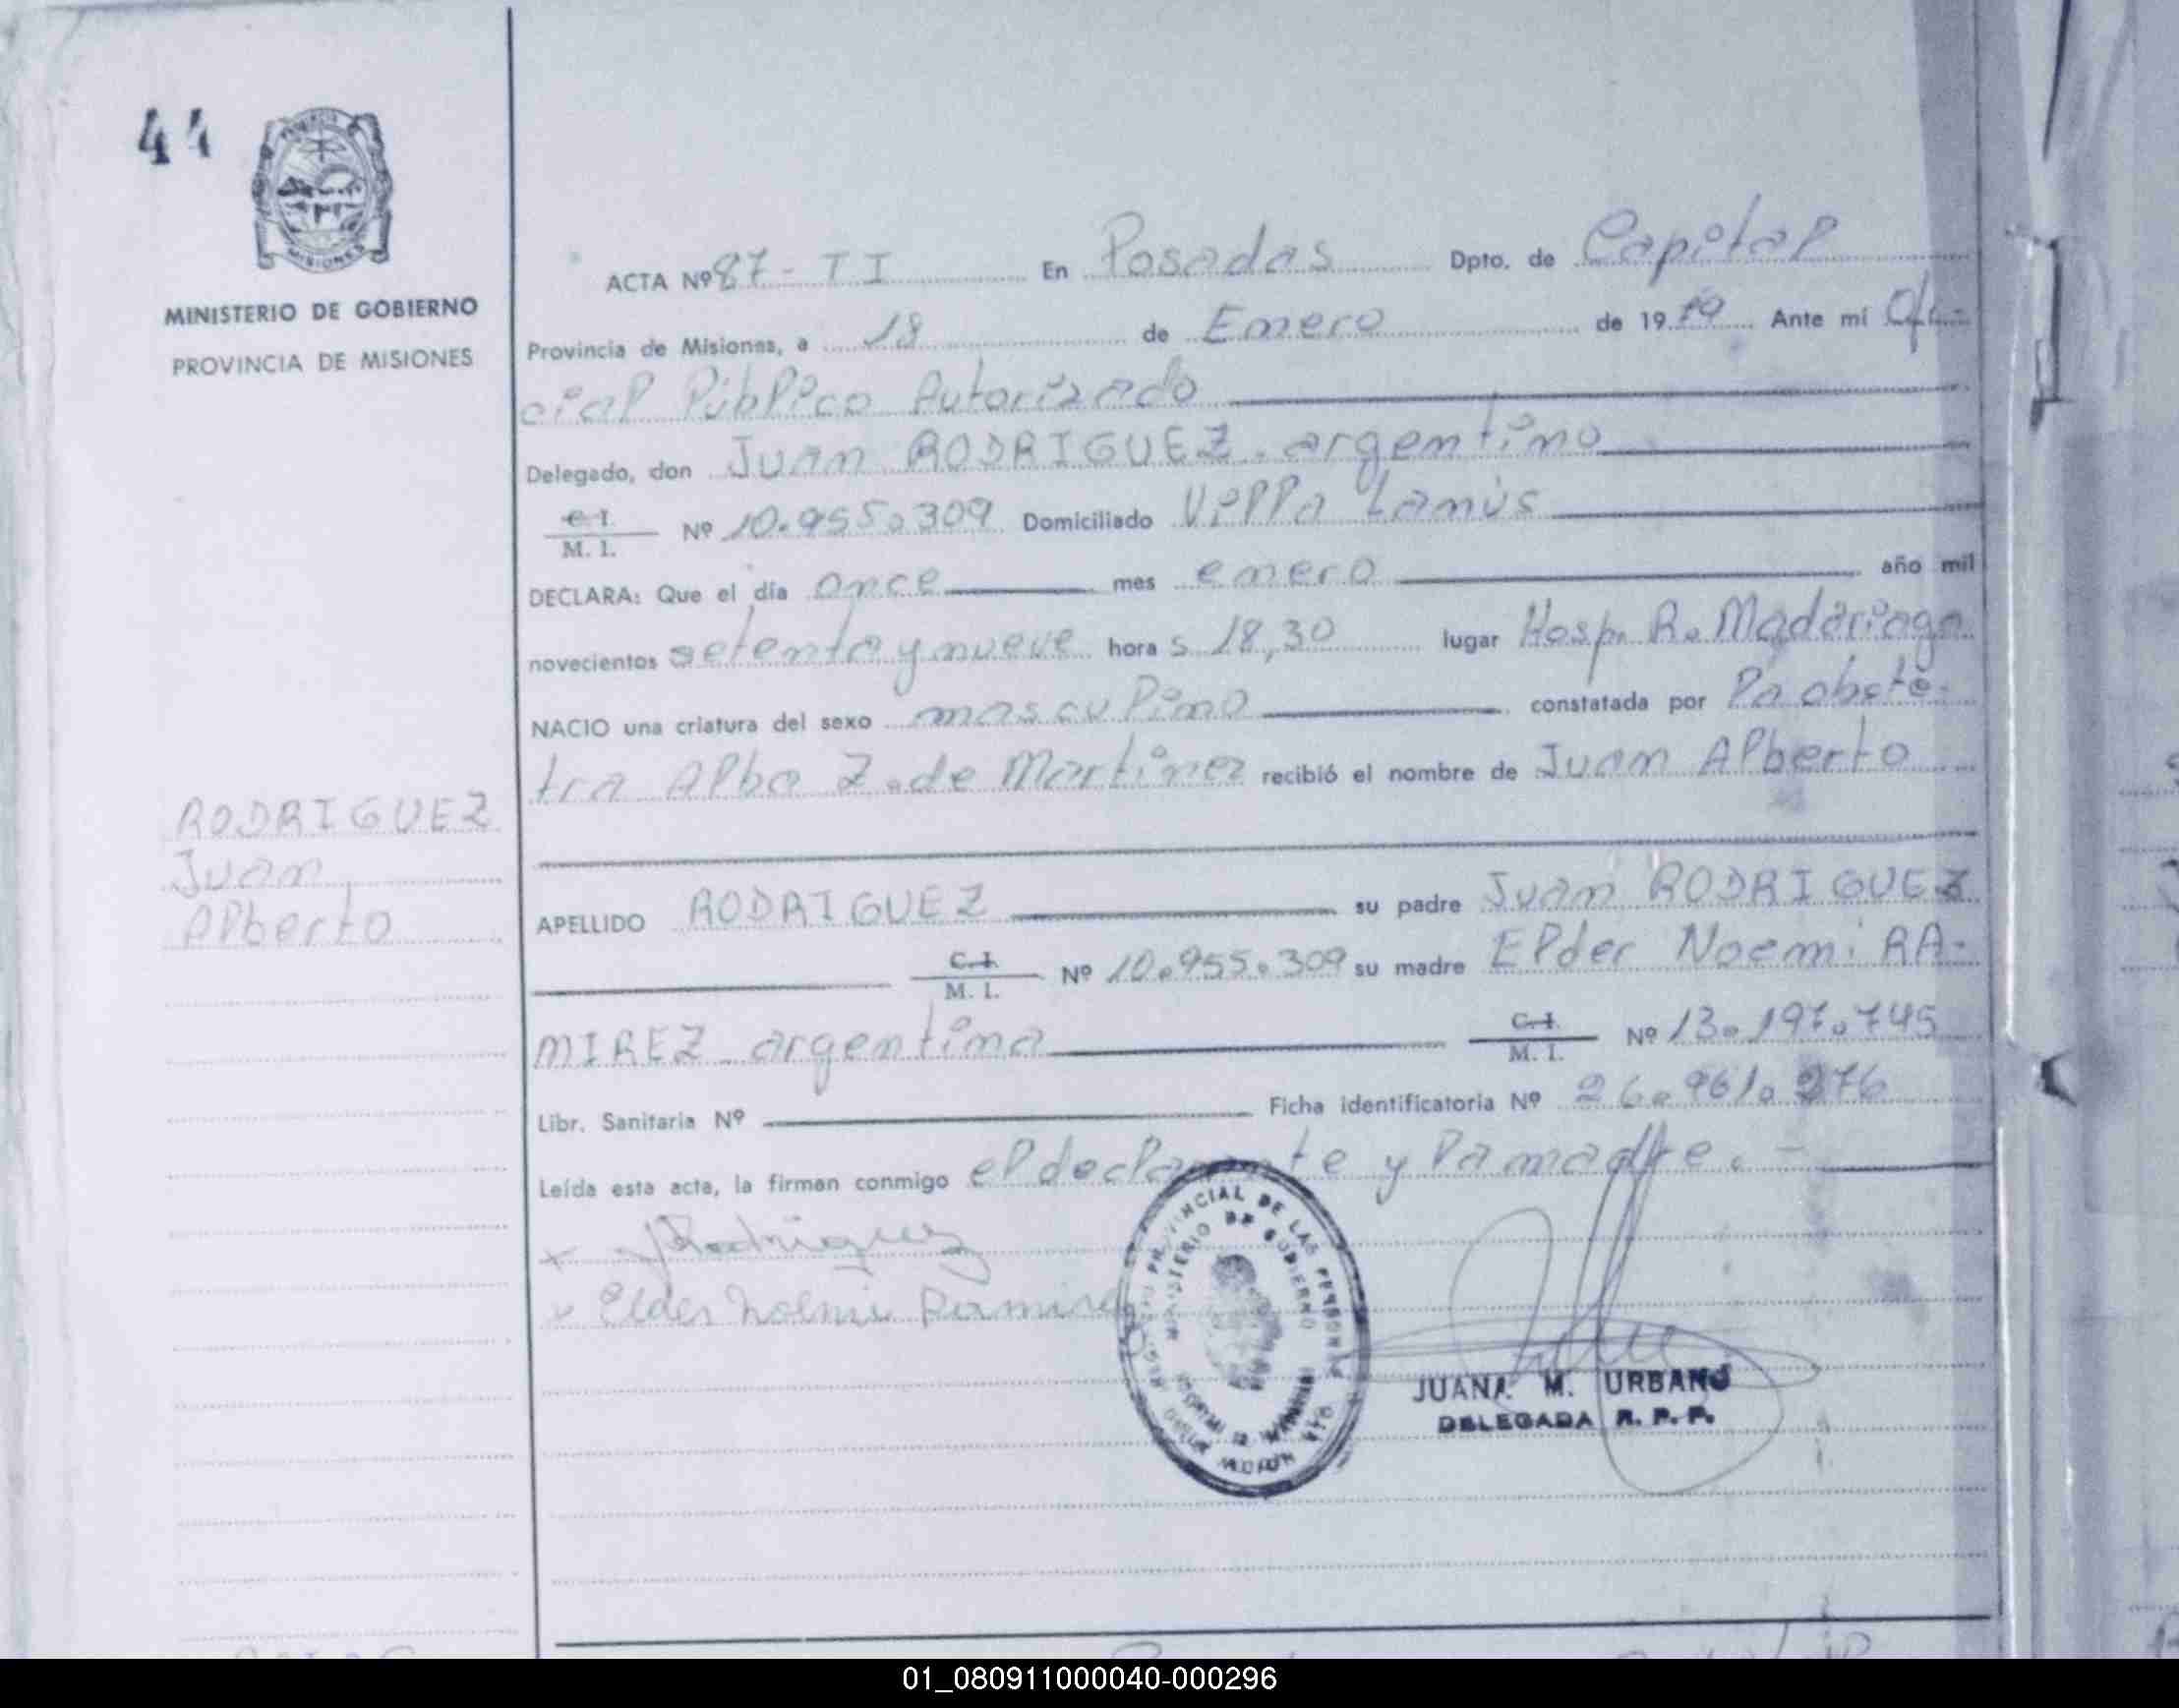 44
MINISTERIO DE GOBIERNO
PROVINCIA DE MISIONES
ACTA Nº 87 - T I En Posadas Dpto. de Capital
Provincia de Misiones, a 18 de Enero de 1979 Ante mi Ofi-
cial Público Autorizado
Delegado, don Juan RODRIGUEZ. argentino
C.I.
M. I. Nº 10.955.309 Domiciliado Villa Lanús
DECLARA: Que el día once mes enero año mil
novecientos setenta y nueve hora s 18,30 lugar Hosp. R. Madariaga
NACIO una criatura del sexo masculino constatada por la obsté-
tra Alba Z. de Martinez recibió el nombre de Juan Alberto
RODRIGUEZ
Juan
Alberto
APELLIDO RODRIGUEZ su padre Juan RODRIGUEZ
C.I.
M. I. Nº 10.955.309 su madre Elder Noemi RA-
MIREZ argentina C.I.
M. I. Nº 13.197.745
Libr. Sanitaria Nº Ficha identificatoria Nº 26.961.276
Leída esta acta, la firman conmigo el declarante y la madre. -
x JRodriguez
x Elder Noemi Ramirez
PROVINCIAL DE LAS PERSONAS
MINISTERIO DE GOBIERNO
JUANA M. URBANO
DELEGADA R. P. P.
01_080911000040-000296